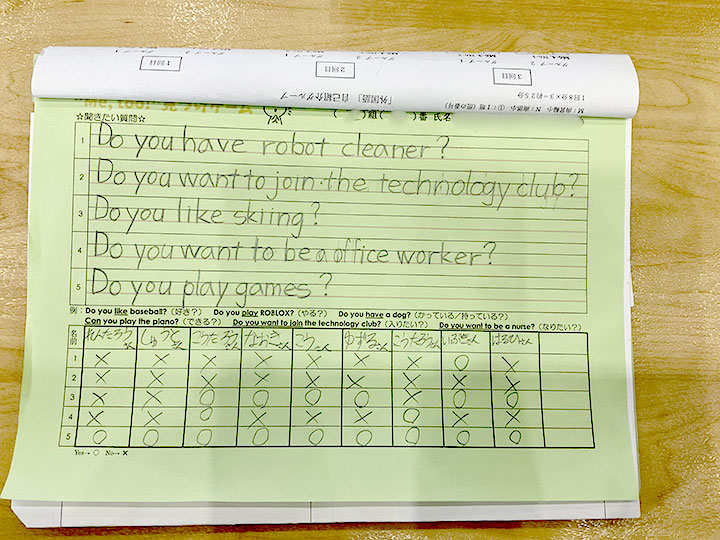 1回目
2回目
3回目
「外国語」自己紹介グループ
☆聞きたい質問☆
番 氏名
1 Do you have robot cleaner?
2 Do you want to join the technology club?
3 Do you like skiing?
4 Do you want to be a office worker?
5 Do you play games?
例: Do you like baseball?(好き?) Do you play ROBLOX?(やる?) Do you have a dog?(かっている/持っている?)
Can you play the piano?(できる?) Do you want to join the technology club?(入りたい?) Do you want to be a nurse?(なりたい?)
名前 れんたろうさん しゅうとさん こうたろうさん なおきさん こうさん ゆずるさん こうたろうさん はるひさん
1 × × × × × × × ○ ×
2 × × × × × × × × ×
3 × × ○ ○ ○ ○ ○ ○ ○
4 × × ○ × × × ○ × ×
5 ○ ○ ○ ○ ○ ○ ○ ○ ○
Yes→ ○ No→ ×